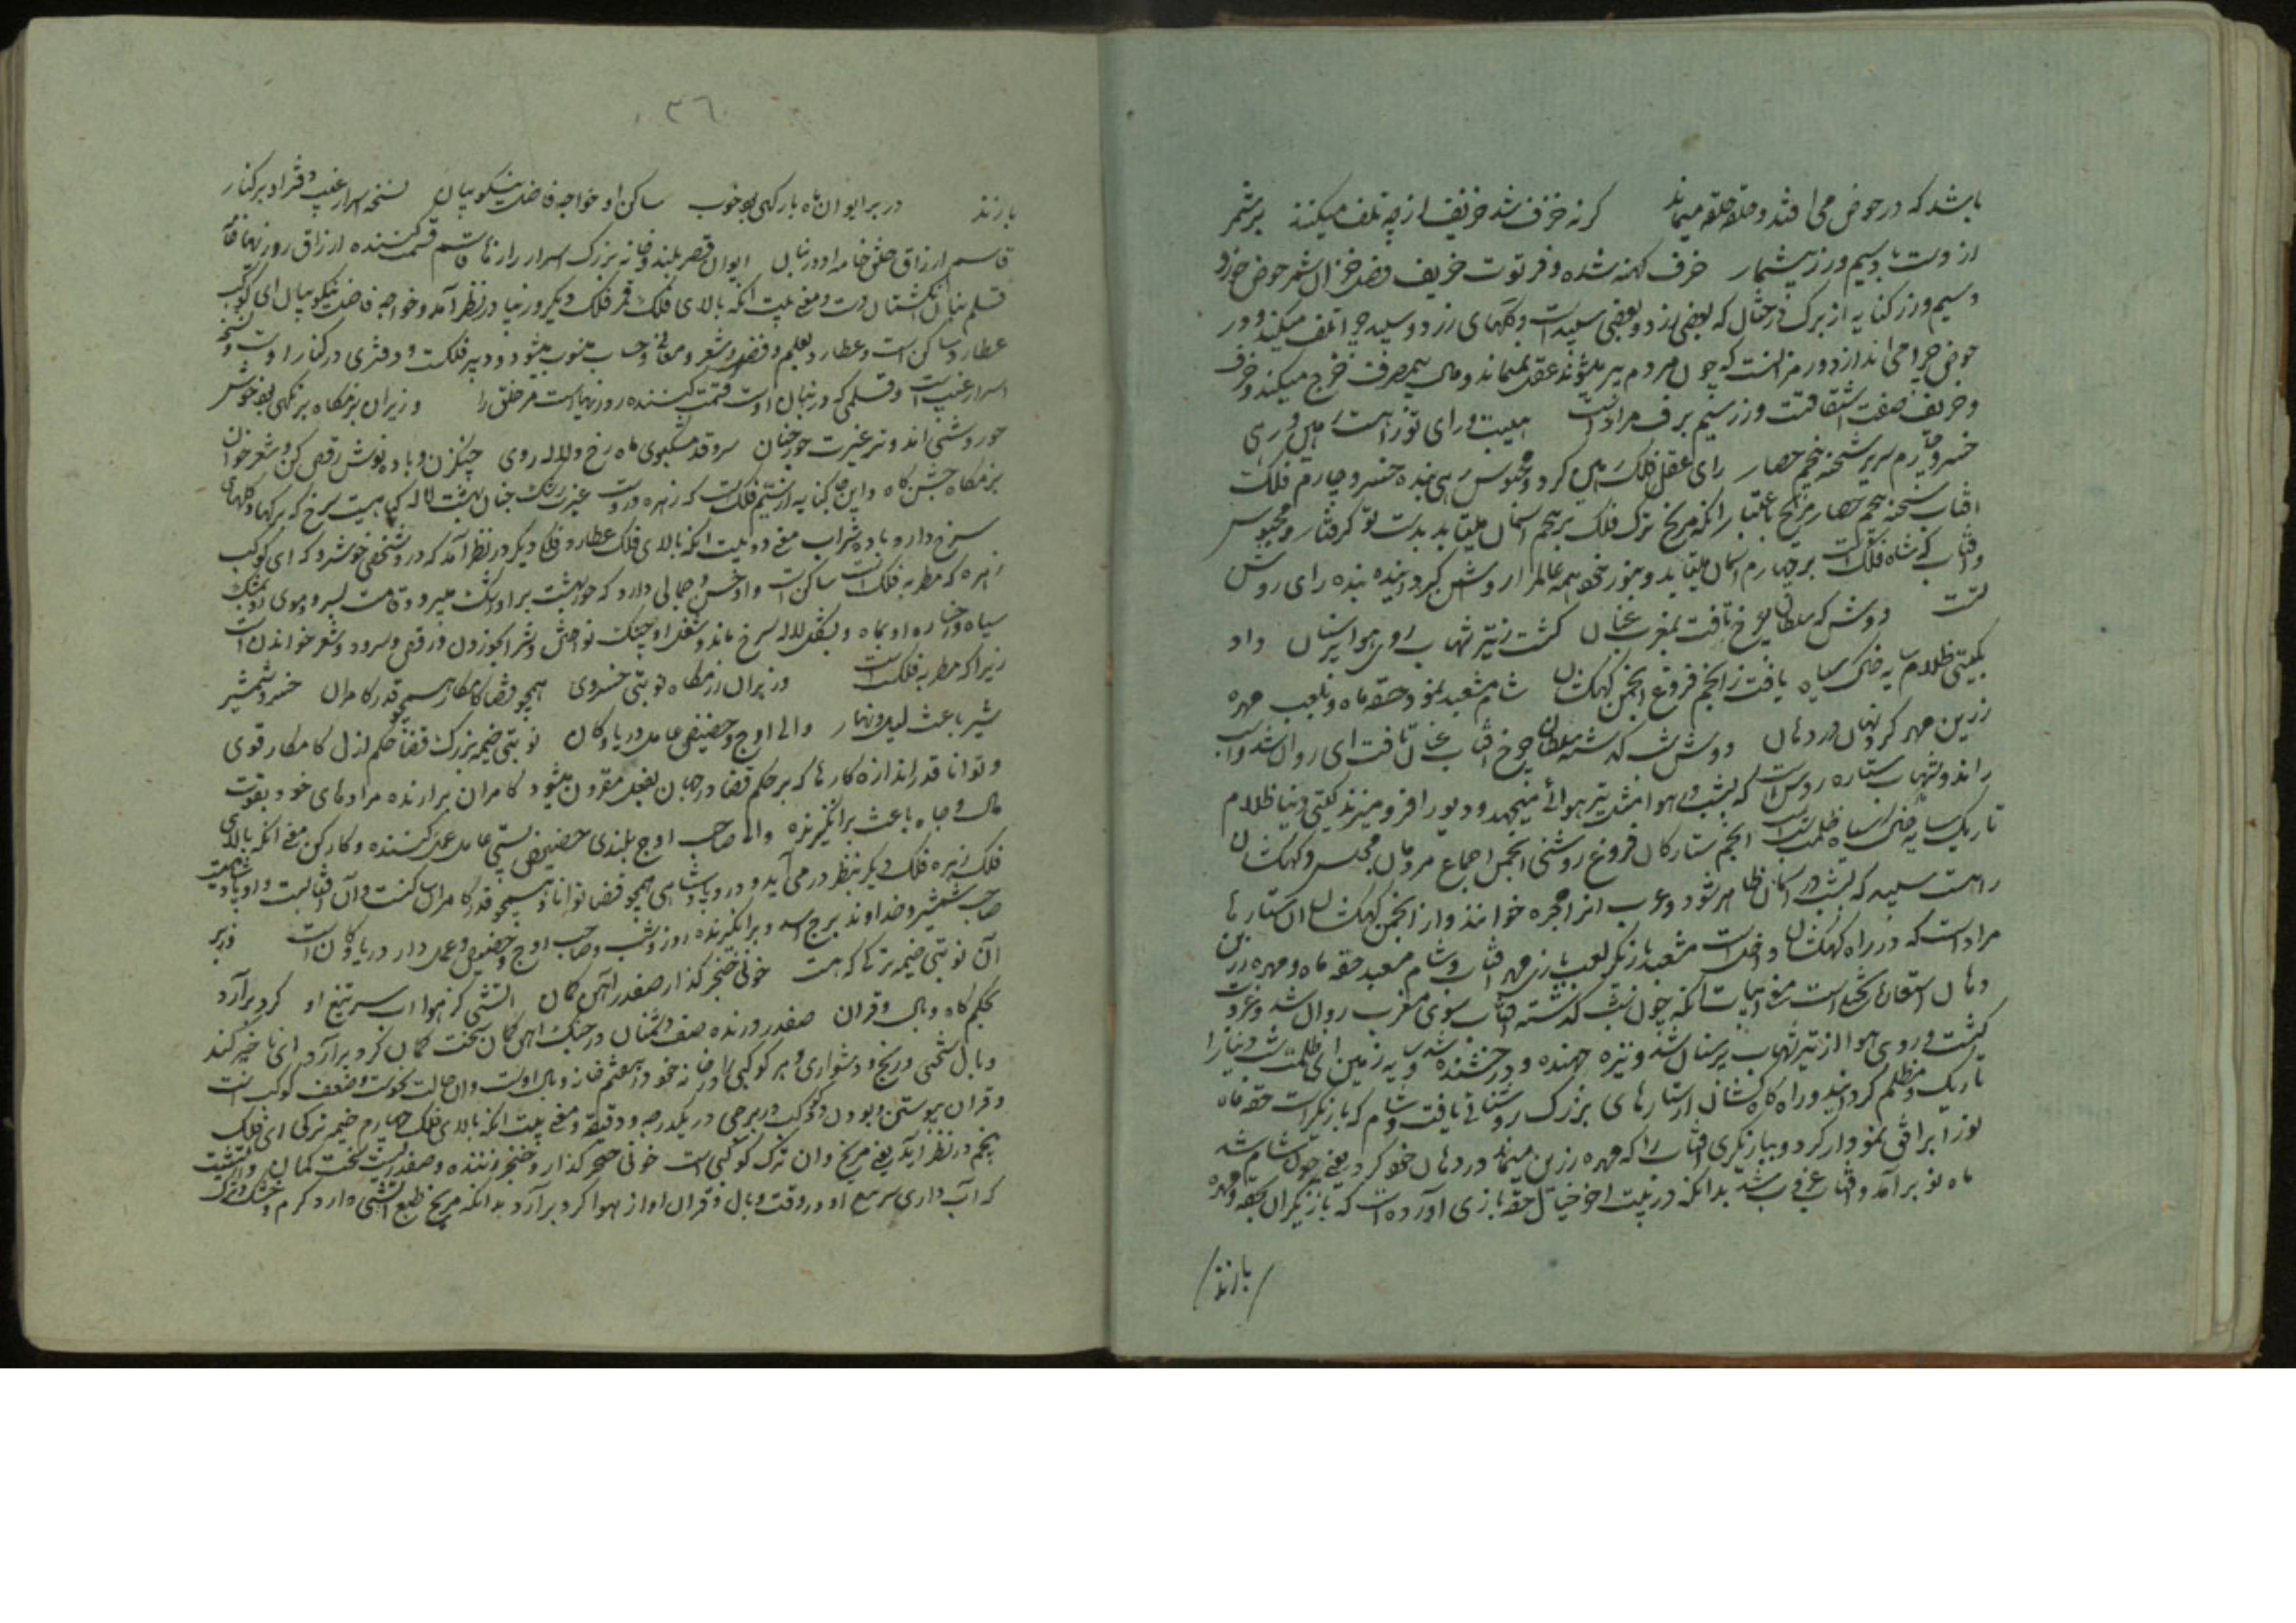 باشد که در حوض می افتد و حلقه حلقه میماند کر نه خرف شد خریف از چه تلف میکند بر شمر
از دست سیم و زر بیشمار خرف کهنه شده و فرتوت خریف فصل خزان شمر حوض خورد
و سیم و زر کنایه از برک درختان که بعضی زرد و بعضی سپید است و برکهای زرد و سپید چرا تلف میکند و در
حوض چرا می اندازد و رمز آنست که چون مردم پیر میشوند عقل نمیماند و مال بیمصرف خرج میکند و خرف
و خریف صنعت اشتقاقست و زر سیم برف مراد است بیت رای تو را است
خسرو چارم سریر شحنه پنجم حصار رای عقل فلک کرد و محبوس بنده خسرو چارم فلک
آفتاب شحنه پنجم حصار مریخ باعتبار آنکه مریخ ترک فلک بر پنجم آسمان میتابد بدست تو کرفتار و محبوس
و آفتاب که شاه فلکست بر چهارم آسمان میتابد و بنور خود همه عالم را روشن کرد بنده رای روشن
تست دوش که سلطان چرخ تافت بمغرب عنان کشت ز تیر شهاب روی هوا پرسنان داد
بکیتی ظلام سایه خاک سیاه یافت ز انجم فروغ انجمن کهکشان شام مشعبد نمود حقه ماه و بلعب مهره
زرین مهر کرد نهان در دهان دوش شب کذشته سلطان چرخ آفتاب عنان تافت ای روان شد و اسب
راند و شهاب ستاره روشن است که بشب در هوا مثل تیر هوائی میجهد و دیو را فرو میزند کیتی دنیا ظلام
تاریک سایه خاک سیاه ظلمت شب انجم ستارکان فروغ روشنی انجمن اجماع مردمان مجلس و کهکشان
راهست سپید که بشب در آسمان ظاهر شود و عرب آنرا مجره خوانند و از انجمن کهکشان آن ستارها
مراد است که در راه کهکشان واقع است مشعبد بازیکر لعب بازی مهر آفتاب و شام مشعبد حقه ماه و مهره زرین
دهان استعاره تخییل است معنی ابیات آنکه چون شب کذشته آفتاب سوی مغرب روان شد و غروب
کشت و روی هوا از تیر شهاب پر سنان شد و نیزه جهنده و درخشنده شد و سایه زمین ای ظلمت شب دنیا را
تاریک و مظلم کردانید و راه کاهکشان از ستارهای بزرک روشنائی یافت و شام که بازیکر است حقه ماه
نو را بر افق نمودار کرد و ببازیکری آفتاب را که مهره زرین میماند در دهان خود کرد یعنی چون شام شد
ماه نو بر آمد و آفتاب غروب شد بدانکه درین بیت اخر خیال حقه بازی آورده است که بازیکران حقه و مهره
بازند
۳٦
بازند در بر ایوان ماه بارکهی بود خوب ساکن او خواجه فاضل نیکو بیان نسخه اسرار غیب دفتر او بر کنار
قاسم ارزاق خلق خامه او در بنان ایوان قصر بلند و خانه بزرک اسرار رازها قاسم قسمت کننده ارزاق روزیها خامه
قلم بنان انکشتان دست و معنی بیت آنکه بالای فلک قمر فلک دیکر در نظر آمد و خواجه فاضل نیکو بیان ای کوکب
عطارد ساکن است و عطارد بعلم و فضل و شعر و معانی و حساب منسوب میشود و دبیر فلکست و دفتری در کنار اوست و نسخه
اسرار غیب است و قلمی که در بنان اوست قسمت کننده روزیهاست مر خلق را وز بر آن بزمکاه بزمکهی بود خوش
حور وشی اندر غیرت حور جنان سرو قد مشکبوی ماه رخ و لاله روی چنکزن و باده نوش رقص کن و شعر خوان
بزمکاه جشن کاه و این کنایه از سیم فلکست که زهره در وست غیرت رشک جنان بهشت لاله کلی است سرخ که برکها و کلهای
سرخ دارد باده شراب معنی دو بیت آنکه بالای فلک عطارد فلک دیکر در نظر آمد که در و شخصی خوشرو که ای کوکب
زهره که مطربه فلک است ساکن است و او حسن و جمالی دارد که حور بهشت بر او رشک میبرد و قامت بسرو و موی او بمشک
سیاه و رخساره او بماه و بشکل لاله سرخ ماند و شغل او چنک نواختن و شراب خوردن و رقص و سرود و شعر خواندن است
زیرا که مطربه فلکست وز بر آن رزمکاه نوبتی خسروی همچو قضا کامکار همچو قدر کامران خسرو شمشیر
شیر باعث لیل و نهار والی اوج و حضیض عامل دریا و کان نوبتی خیمه بزرک قضا حکم ازل کامکار قوی
و توانا قدر اندازه کارها که بر حکم قضا در جهان بفعل مقرون میشود کامران برآرنده مرادهای خود بقوت
مال و جاه باعث برانکیزنده والی صاحب اوج بلندی حضیض پستی عامل عمل کننده و کارکن معنی آنکه بالای
فلک زهره فلک دیکر بنظر در می آید و در و پادشاهی همچو قضا توانا و همچو قدر کامران است و آن آفتابست و او پادشاهیست
صاحب شمشیر و خداوند برج اسد و برانکیزنده روز و شب و صاحب اوج و حضیض و عمل دار دریا و کان است وز بر
آن نوبتی خیمه ترکی که هست خونی خنجر کذار صفدر آهن کمان آتشی کز هوا آب سر تیغ او کرد برآرد
بحکم کاه وبال و قران صفدر درنده صف دشمنان در جنک آهن کمان سخت کمان کرد برآرد ای ناچیز کند
وبال سختی و رنج و دشواری و هر کوکبی را در خانه خود هفتم خانه وبال اوست و آن حالت نحوست و ضعف کوکب است
و قران پیوستن و بودن دو کوکب در برجی در یکدرجه و دقیقه و معنی بیت آنکه بالای فلک چهارم خیمه ترکی ای فلک
پنجم در نظر آید یعنی مریخ و آن ترک کوکبی است خونی خنجر کذار و خنجر زننده و صفدر است سخت کمان و آتشیست
که آب داری سر تیغ او در وقت وبال و قران او از هوا کرد برآرد بدانکه مریخ طبع آتشی دارد کرم و خشک و ترک